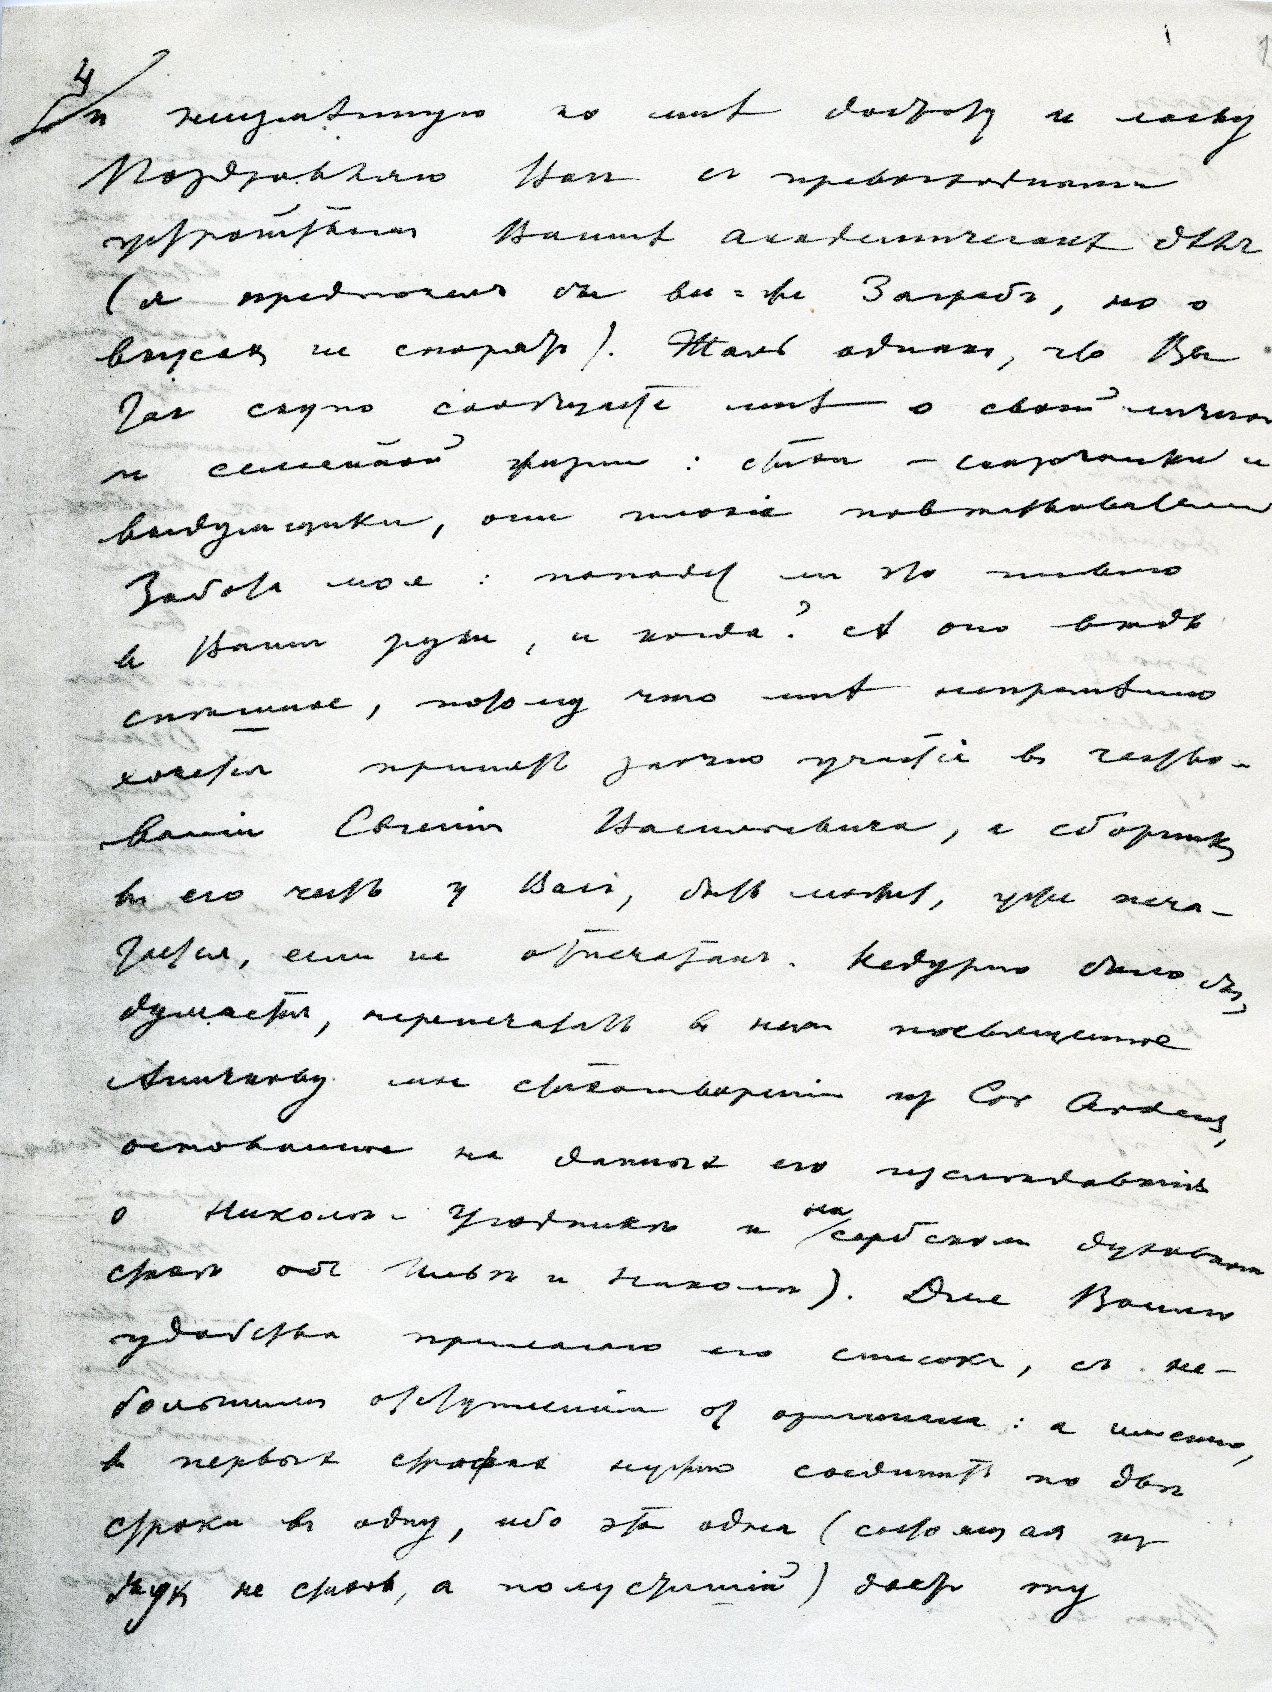 4
и неизмѣнную ко мнѣ доброту и ласку
Поздравляю Васъ съ превосходнымъ
устройствомъ Вашихъ академическихъ дѣлъ
(я предпочелъ бы все-же Загребъ, но о
вкусахъ не спорятъ). Жаль однако, что Вы
такъ скупо сообщаете мнѣ о своей личной
и семейной жизни: стихи – сказочники и
выдумщики, они плохіе повѣствователи
Забота моя: попадетъ ли это письмо
въ Ваши руки, и когда? А оно вѣдь
спѣшное, потому что мнѣ непремѣнно
хочется принять заочно участіе въ чество-
ваніи Евгенія Васильевича, а сборникъ
въ его честь у Васъ, быть можетъ, уже печа-
тается, если не отпечатанъ. Недурно было бы,
думается, перепечатать въ немъ посвященное
Аничкову мое стихотвореніе изъ Cor Ardens,
основанное на данныхъ его изслѣдованія
о Николѣ-Угодникѣ и на сербскомъ духовномъ
стихѣ объ Ильѣ и Николѣ). Для Вашего
удобства прилагаю его списокъ, съ не-
большими отступленіями отъ оригинала: а именно,
въ первыхъ строфахъ нужно соединить по двѣ
строки въ одну, ибо эта одна (состоящая изъ
двухъ не стиховъ, а полустишій) даетъ ту